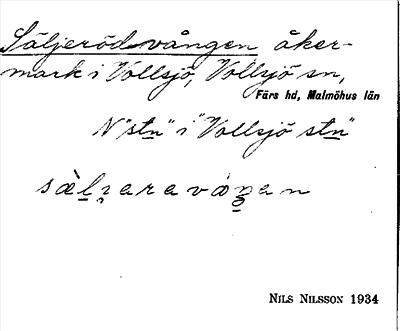 Säljerödsvången åker-
mark i Vollsjö, Vollsjö sn,
Färs hd, Malmöhus län
N "stn" i "Vollsjö stn"
NILS NILSSON 1934